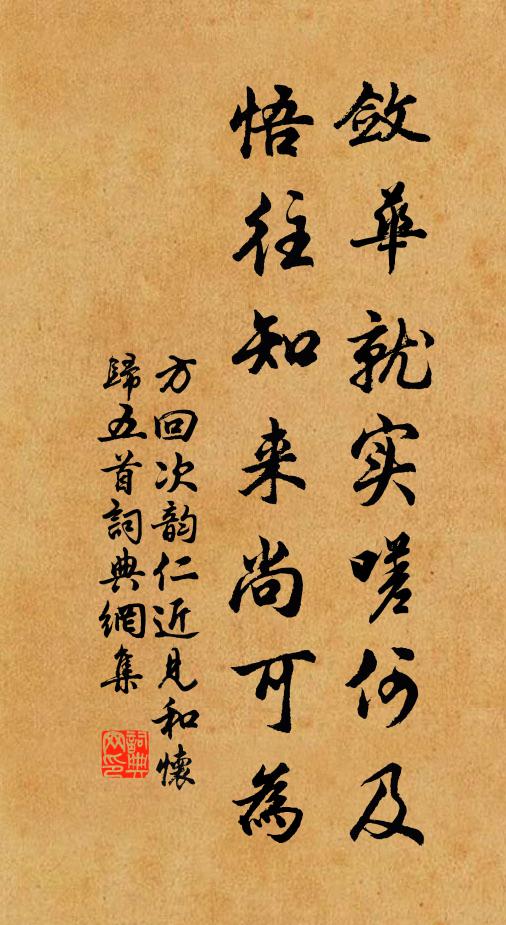 敛華就实嗟何及
悟往知来尚可為
方回次韵仁近见和懷
歸五首詞典網集
詞典網印